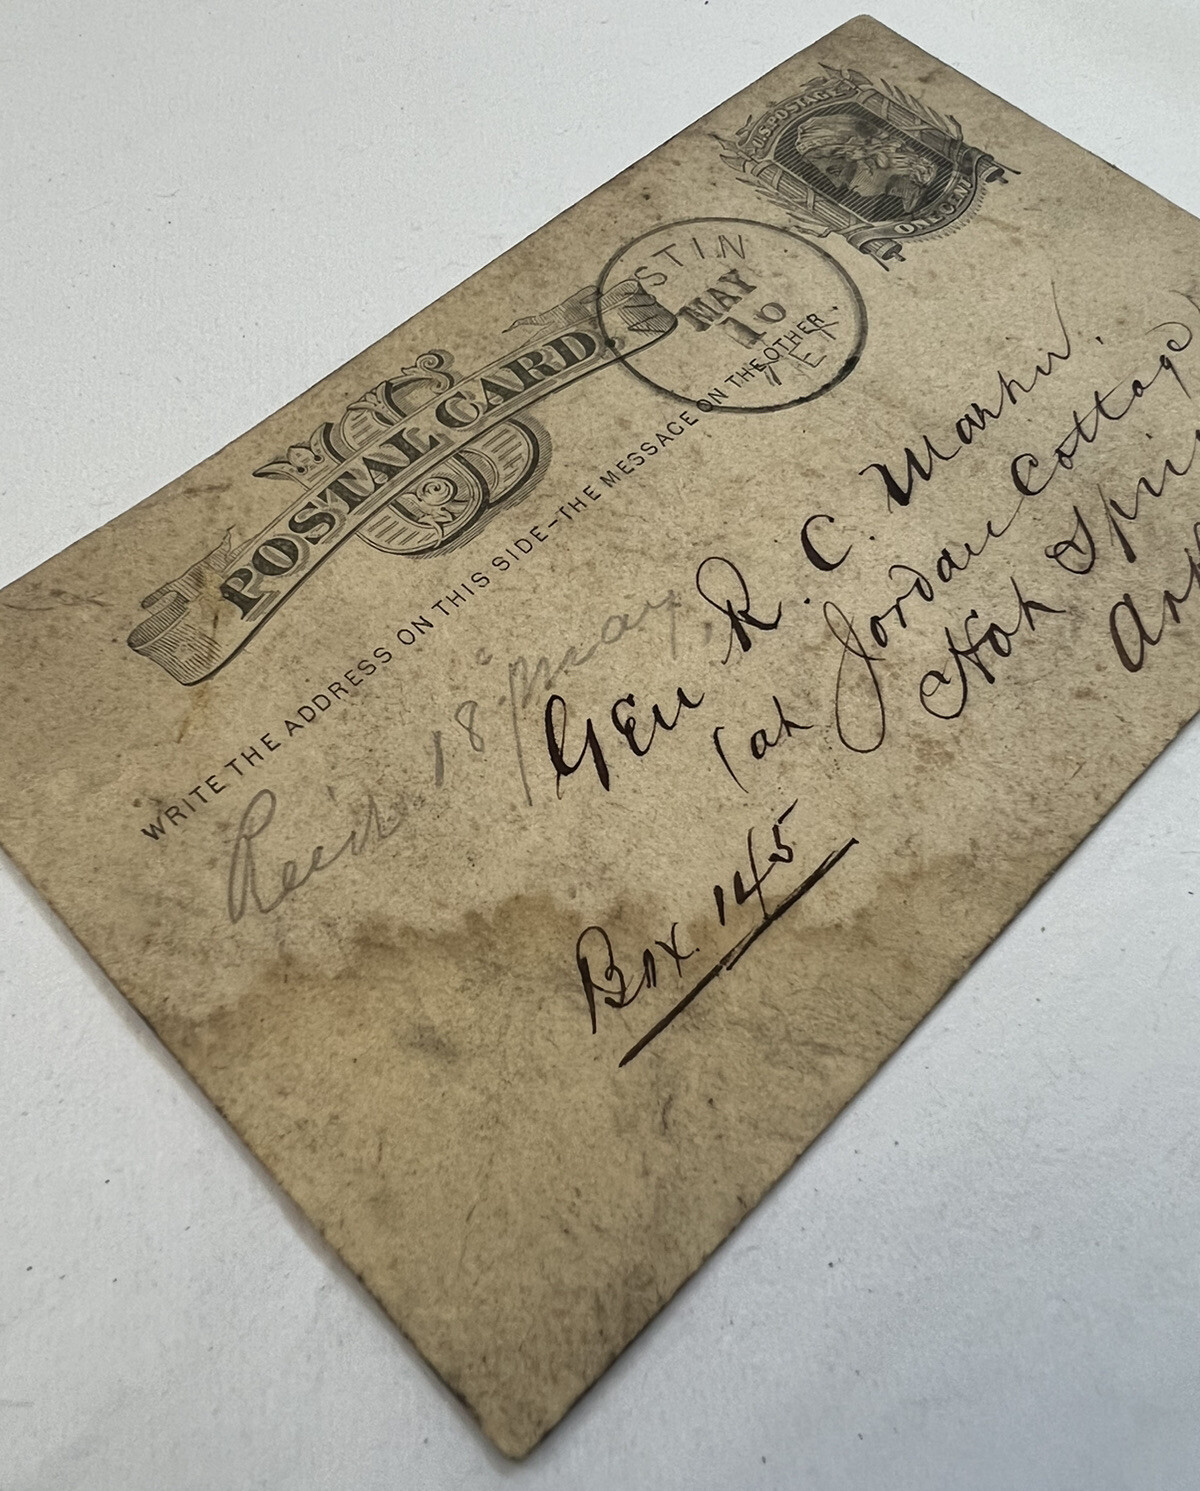 U.S. POSTAGE
ONE CENT
US
POSTAL CARD.
AUSTIN
MAY
10
TEX
WRITE THE ADDRESS ON THIS SIDE-THE MESSAGE ON THE OTHER.
Recd 18 May
Gen R. C.
(at Jordan Cottage
Hot Spri
Ark
Box. 145